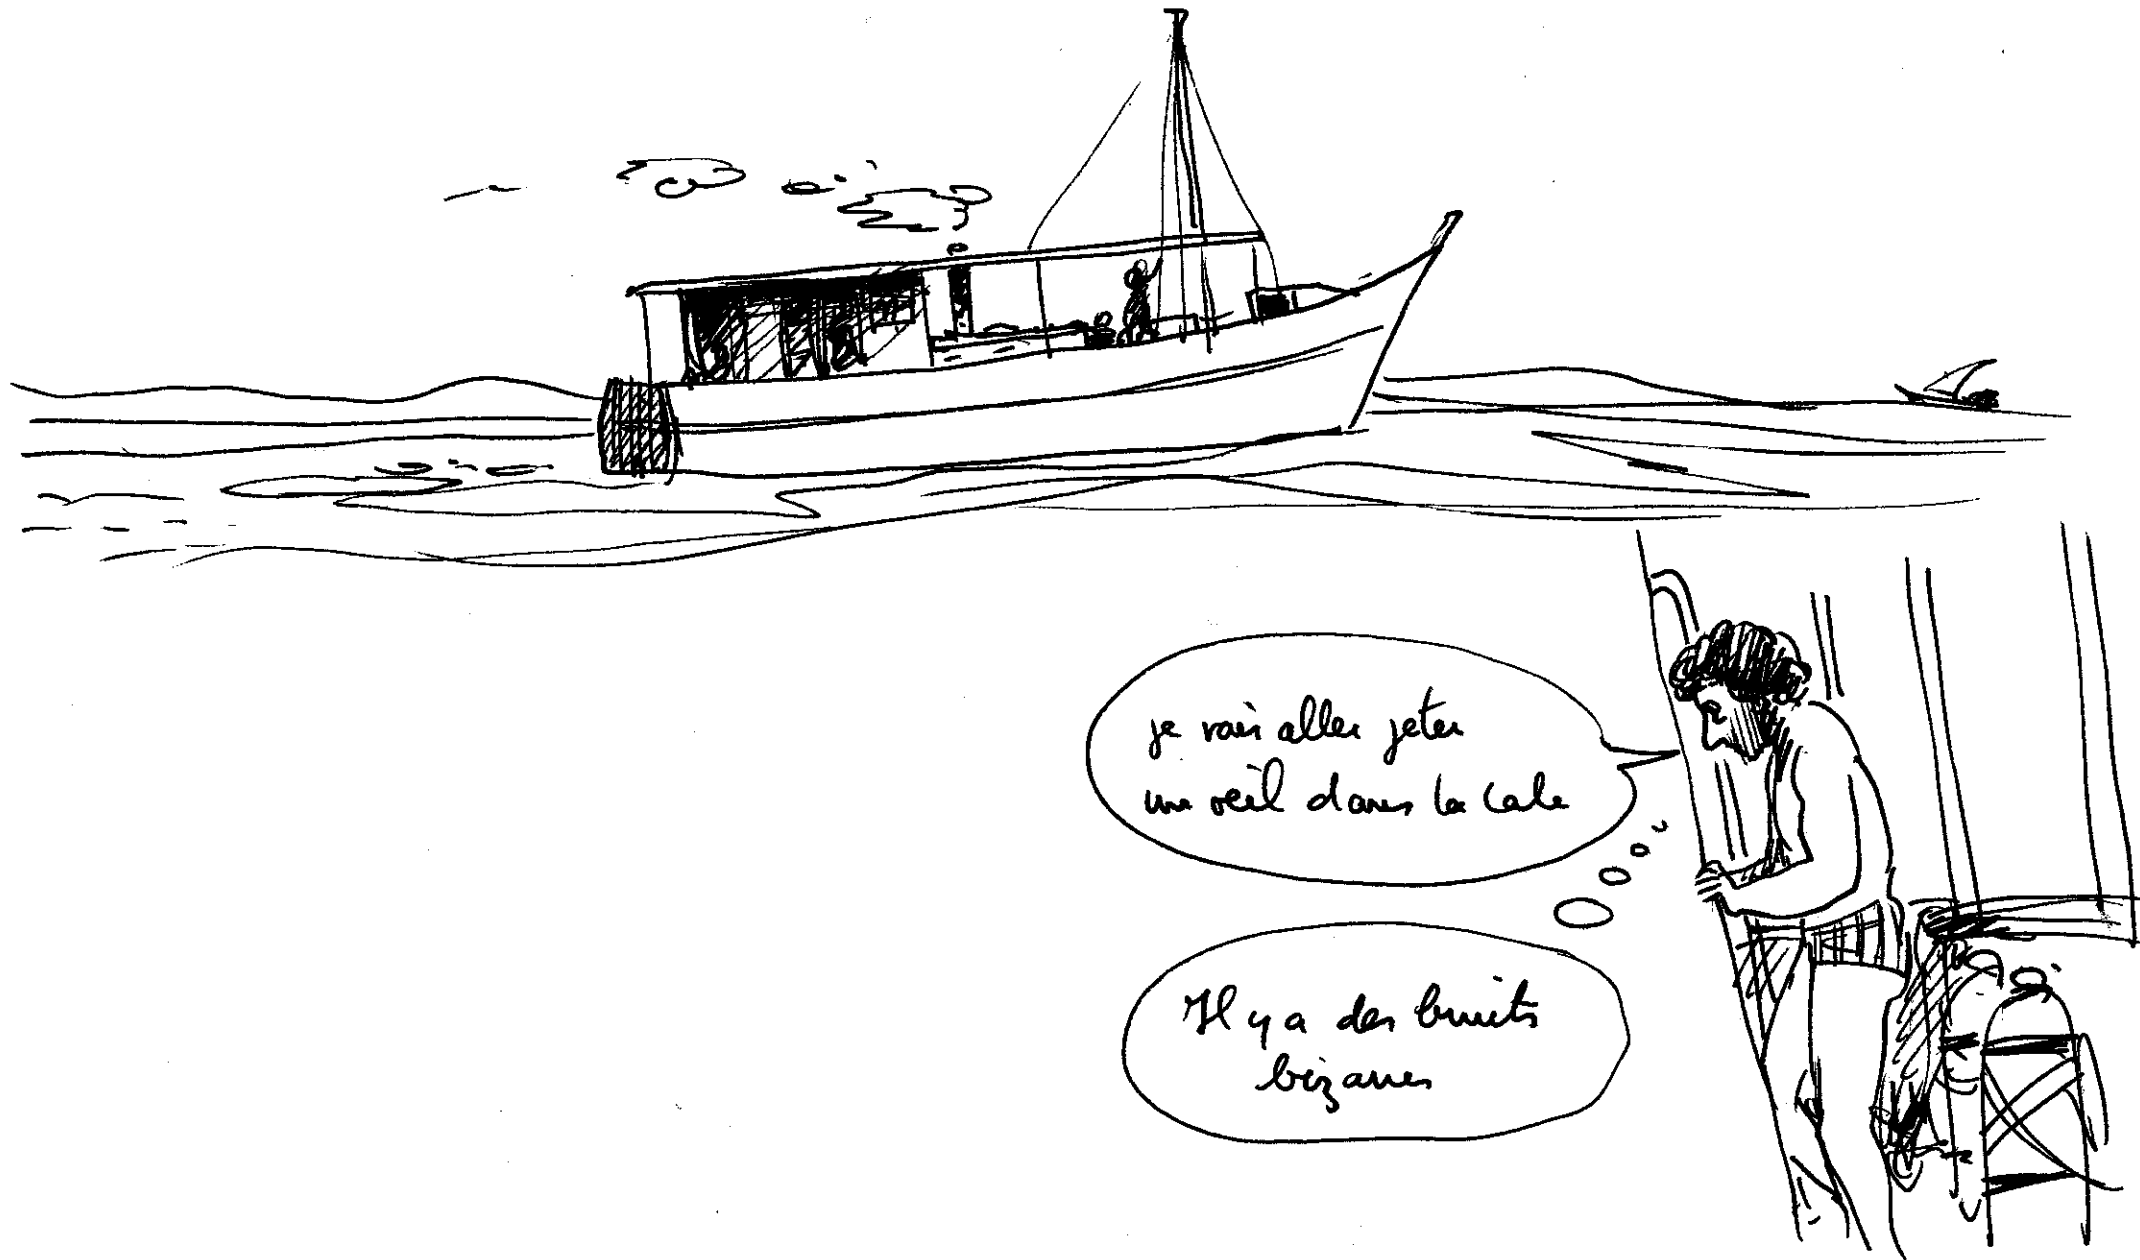 je vais aller jeter
un œil dans la cale
Il y a des bruits
bizarres